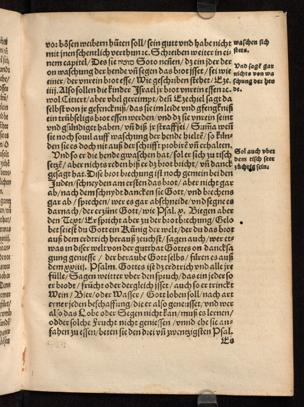 vor bösen wurm hütten soll / sein gutt vnd habe nicht
mit jnen schenelich verthun ꝛc. Schreiben weiter in ei
nem capitel / Des sie Soto neñen / dz ein jder der
on waschung der hende vñ segen das brot jsset / sey wie
einer / der vnrein brot esse / Wie geschriben stehet / Eze.
iiii. Also sollen die kinder Jsrael ir brot vnrein essen ꝛc.
wol Citiert / aber vbel gereimpt / deñ Ezechiel sagt da
selbst von jr gefencknuß / das sie im elend vnd gefencknuß
ein trübseligs brot essen werden / vñ dz sie vnrein seint
vnd gsündiget haben / vnd sich so straffet / Suma weil
sie noch souil auff waschung der hende bielte / so kün
den sie es doch nit auß der schrifft probirn vñ erhalten.
Vnd so er die hend gewaschen hat / sol er sich zu tisch
setzē / aber nichts essen biß er dz brot brich / vñ danck
gesagt hat. Die brot brechung ist noch gemein bei den
Juden / schneyden am ersten das brot / aber nicht gar
ab / nach dem schnydt dancken sie Gott / vnd brechens
gar ab / sprechen / wer es gar abschneide / vnd segne es
darnach / der erzürne Gott / wie Psal. Biegen aber
den Text / Er spricht aber zu der brotbrechung / Gelo
bet seiest du Gott ein Künig der welt / der du das brot
auß dem erdtrich herauß zuchst / sagen auch / wer et
was in diser welt von der gutthat Gottes on dancksa
gung geniesse / der beraube Gott selbs / füren es auß
dem xxiiii. Psalm. Gottes ist dz erdtrich vnd alle jr
fülle / Sagen weitter vber den spruch / das ein jeder so
er brodt / frücht oder der gleich jsset / auch so er trinckt
Wein / Bier / oder Wasser / Gott loben soll / nach art
einer jeden beschaffung / die er also geniesset / vnd wer
also das Lobe oder Segen nicht kan / muß es lernen /
odder solche Frucht nicht geniessen / vnnd ehe sie an
fahen zu essen / beten sie den drei vñ zwentzigsten Psal.
Es
waschen sich
stets.
Vnd sagt gar
nichts von wa
schung der hen
de.
Sol auch vber
dem tisch stet